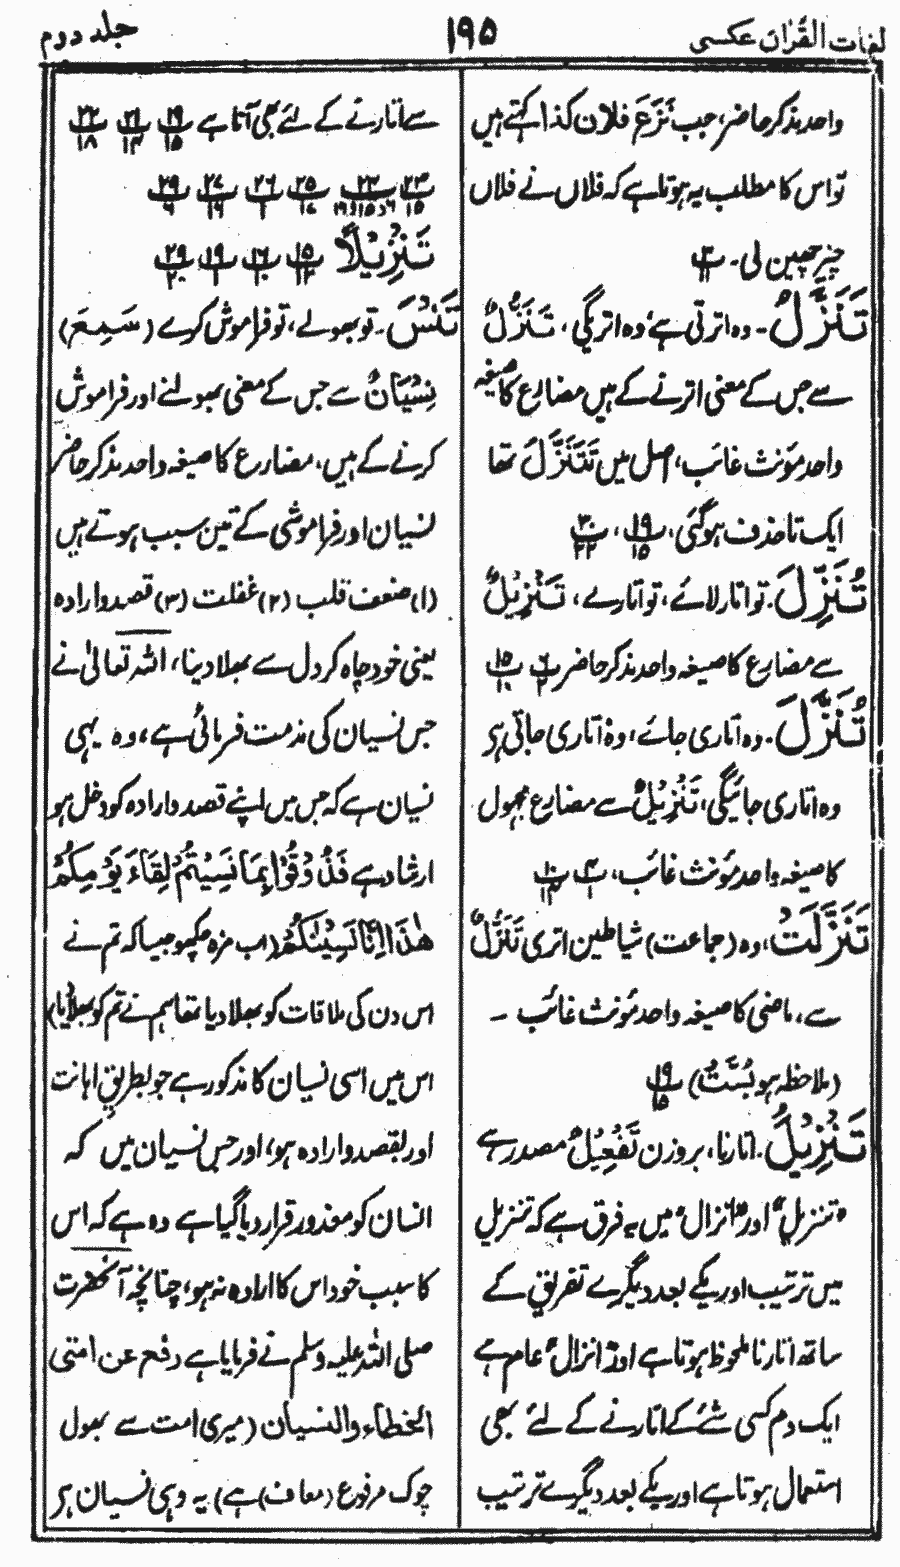 لغات القرآن عکسی
۱۹۵
جلد دوم
واحد مذکر حاضر، جب نَزَعَ فلان کذا کہتے ہیں
تو اس کا مطلب یہ ہوتا ہے کہ فلاں نے فلاں
چیز چھین لی۔ پ۳/۱۱
تَنَزَّلُ۔ وہ اترتی ہے، وہ اتریگی، تَنَزُّلٌ
سے جس کے معنی اترنے کے ہیں مضارع کا صیغہ
واحد مؤنث غائب، اصل میں تَتَنَزَّلُ تھا
ایک تا حذف ہوگئی، پ۱۹/۱۵، پ۳۰/۲۲
تُنَزِّلَ۔ تو اتار لائے، تو اتارے، تَنْزِیْلٌ
سے مضارع کا صیغہ واحد مذکر حاضر پ۶/۲ پ۱۵/۱۰
تُنَزَّلَ۔ وہ اتاری جائے، وہ اتاری جاتی ہے
وہ اتاری جائیگی، تَنْزِیْلٌ سے مضارع مجہول
کا صیغہ واحد مؤنث غائب، پ۴/۱ پ۱۰/۱۴
تَنَزَّلَتْ، وہ (جماعت) شیاطین اتری تَنَزُّلٌ
سے، ماضی کا صیغہ واحد مؤنث غائب ۔
(ملاحظہ ہو بُسَّتْ) پ۱۹/۱۵
تَنْزِیْلُ۔ اتارنا، بروزن تَفْعِیْلٌ مصدر ہے
"تنزیل" اور "انزال" میں یہ فرق ہے کہ تنزیل
میں ترتیب اور یکے بعد دیگرے تفریق کے
ساتھ اتارنا ملحوظ ہوتا ہے اور "انزال" عام ہے
ایک دم کسی شئے کے اتارنے کے لئے بھی
استعمال ہوتا ہے اور یکے بعد دیگرے ترتیب
سے اتارنے کے لئے بھی آتا ہے پ۱۹/۱۵ پ۲۱/۱۴ پ۲۲/۱۸
پ۲۳/۱۵ پ۲۳/۶و۱۵و۱۹ پ۲۵/۱۷ پ۲۶/۱ پ۲۷/۱۹ پ۲۹/۹
تَنْزِیْلًا پ۱۵/۱۲ پ۱۶/۱۰ پ۱۹/۱ پ۲۹/۲۰
تَنْسَ۔ تو بھولے، تو فراموش کرے (سَمِعَ)
نِسْیَانٌ سے جس کے معنی بھولنے اور فراموش
کرنے کے ہیں، مضارع کا صیغہ واحد مذکر حاضر
نسیان اور فراموشی کے تین سبب ہوتے ہیں
(۱) ضعف قلب (۲) غفلت (۳) قصد و ارادہ
یعنی خود چاہ کر دل سے بھلا دینا، اللہ تعالیٰ نے
جس نسیان کی مذمت فرمائی ہے، وہ یہی
نسیان ہے کہ جس میں اپنے قصد و ارادہ کو دخل ہو
ارشاد ہے فَذُوْقُوْا بِمَا نَسِیْتُمْ لِقَآءَ یَوْمِکُمْ
ھٰذَا اِنَّا نَسِیْنٰکُمْ (اب مزہ چکھو جیسا کہ تم نے
اس دن کی ملاقات کو بھلا دیا تھا ہم نے تم کو بھلا دیا)
اس میں اسی نسیان کا مذکور ہے جو بطریق اہانت
اور بقصد و ارادہ ہو، اور جس نسیان میں کہ
انسان کو معذور قرار دیا گیا ہے وہ ہے کہ اس
کا سبب خود اس کا ارادہ نہ ہو، چنانچہ آنحضرت
صلی اللہ علیہ وسلم نے فرمایا ہے رفع عن امتی
الخطاء والنسیان (میری امت سے بھول
چوک مرفوع (معاف) ہے) یہ وہی نسیان ہے